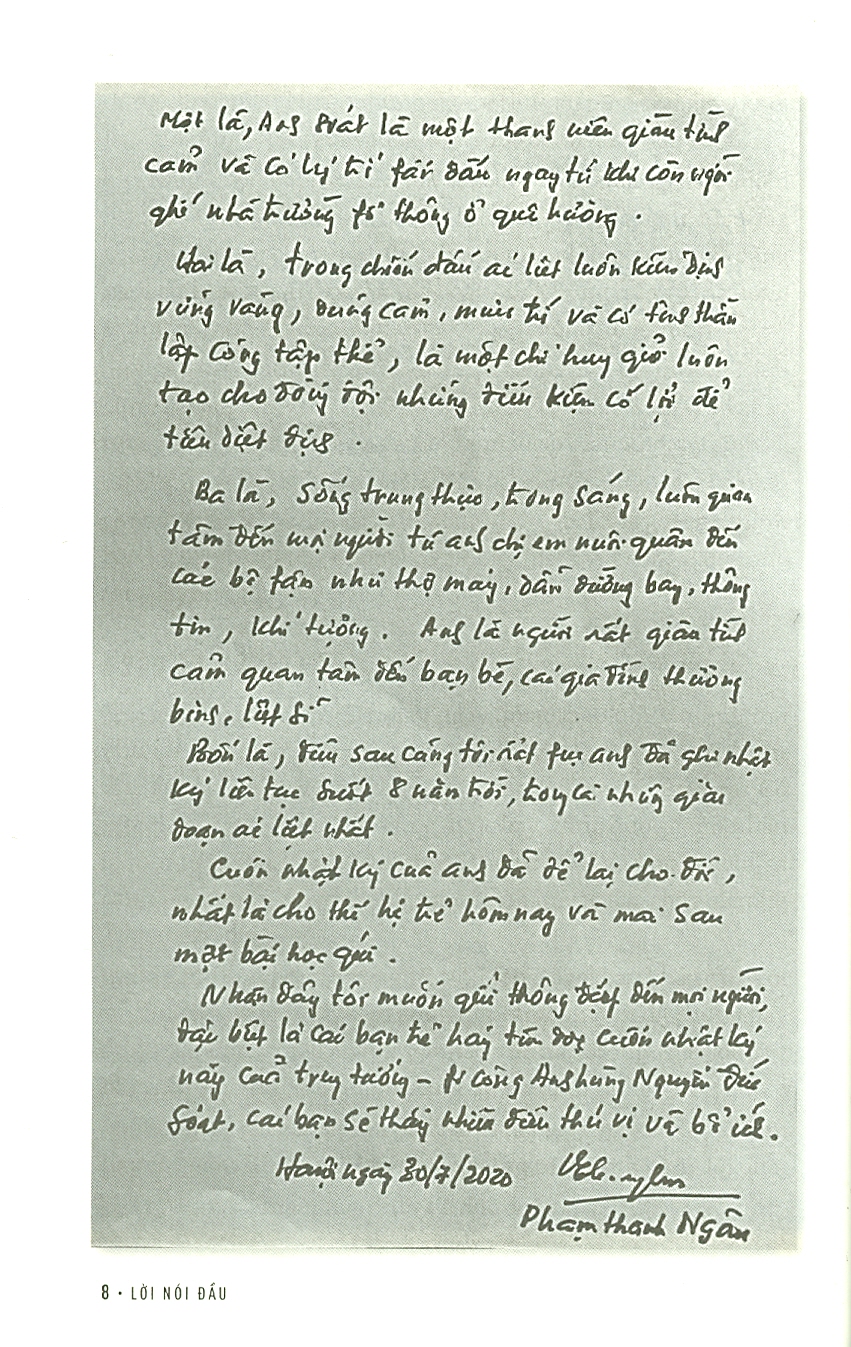 Một là, Anh Soát là một thanh niên giàu tình
cảm và có lý trí fấn đấu ngay từ khi còn ngồi
ghế nhà trường fổ thông ở quê hương.
Hai là, trong chiến đấu ác liệt luôn kiên định
vững vàng, dũng cảm, mưu trí và có tinh thần
lập công tập thể, là một chỉ huy giỏi luôn
tạo cho đồng đội những điều kiện có lợi để
tiêu diệt địch.
Ba là, sống trung thực, trong sáng, luôn quan
tâm đến mọi người từ anh chị em nuôi quân đến
các bộ fận như thợ máy, dẫn đường bay, thông
tin, khí tượng. Anh là người rất giàu tình
cảm quan tâm đến bạn bè, các gia đình thương
binh, liệt sĩ
Bốn là, điều sau cùng tôi rất fục anh đã ghi nhật
ký liên tục suốt 8 năm trời, trong cả những giai
đoạn ác liệt nhất.
Cuốn nhật ký của anh đã để lại cho đời,
nhất là cho thế hệ trẻ hôm nay và mai sau
một bài học quí.
Nhân đây tôi muốn gửi thông điệp đến mọi người,
đặc biệt là các bạn trẻ hãy tìm đọc cuốn nhật ký
này của trung tướng - fi công Anh hùng Nguyễn Đức
Soát, các bạn sẽ thấy nhiều điều thú vị và bổ ích.
Hà nội ngày 30/7/2020
Phạm Thanh Ngân
8 • LỜI NÓI ĐẦU